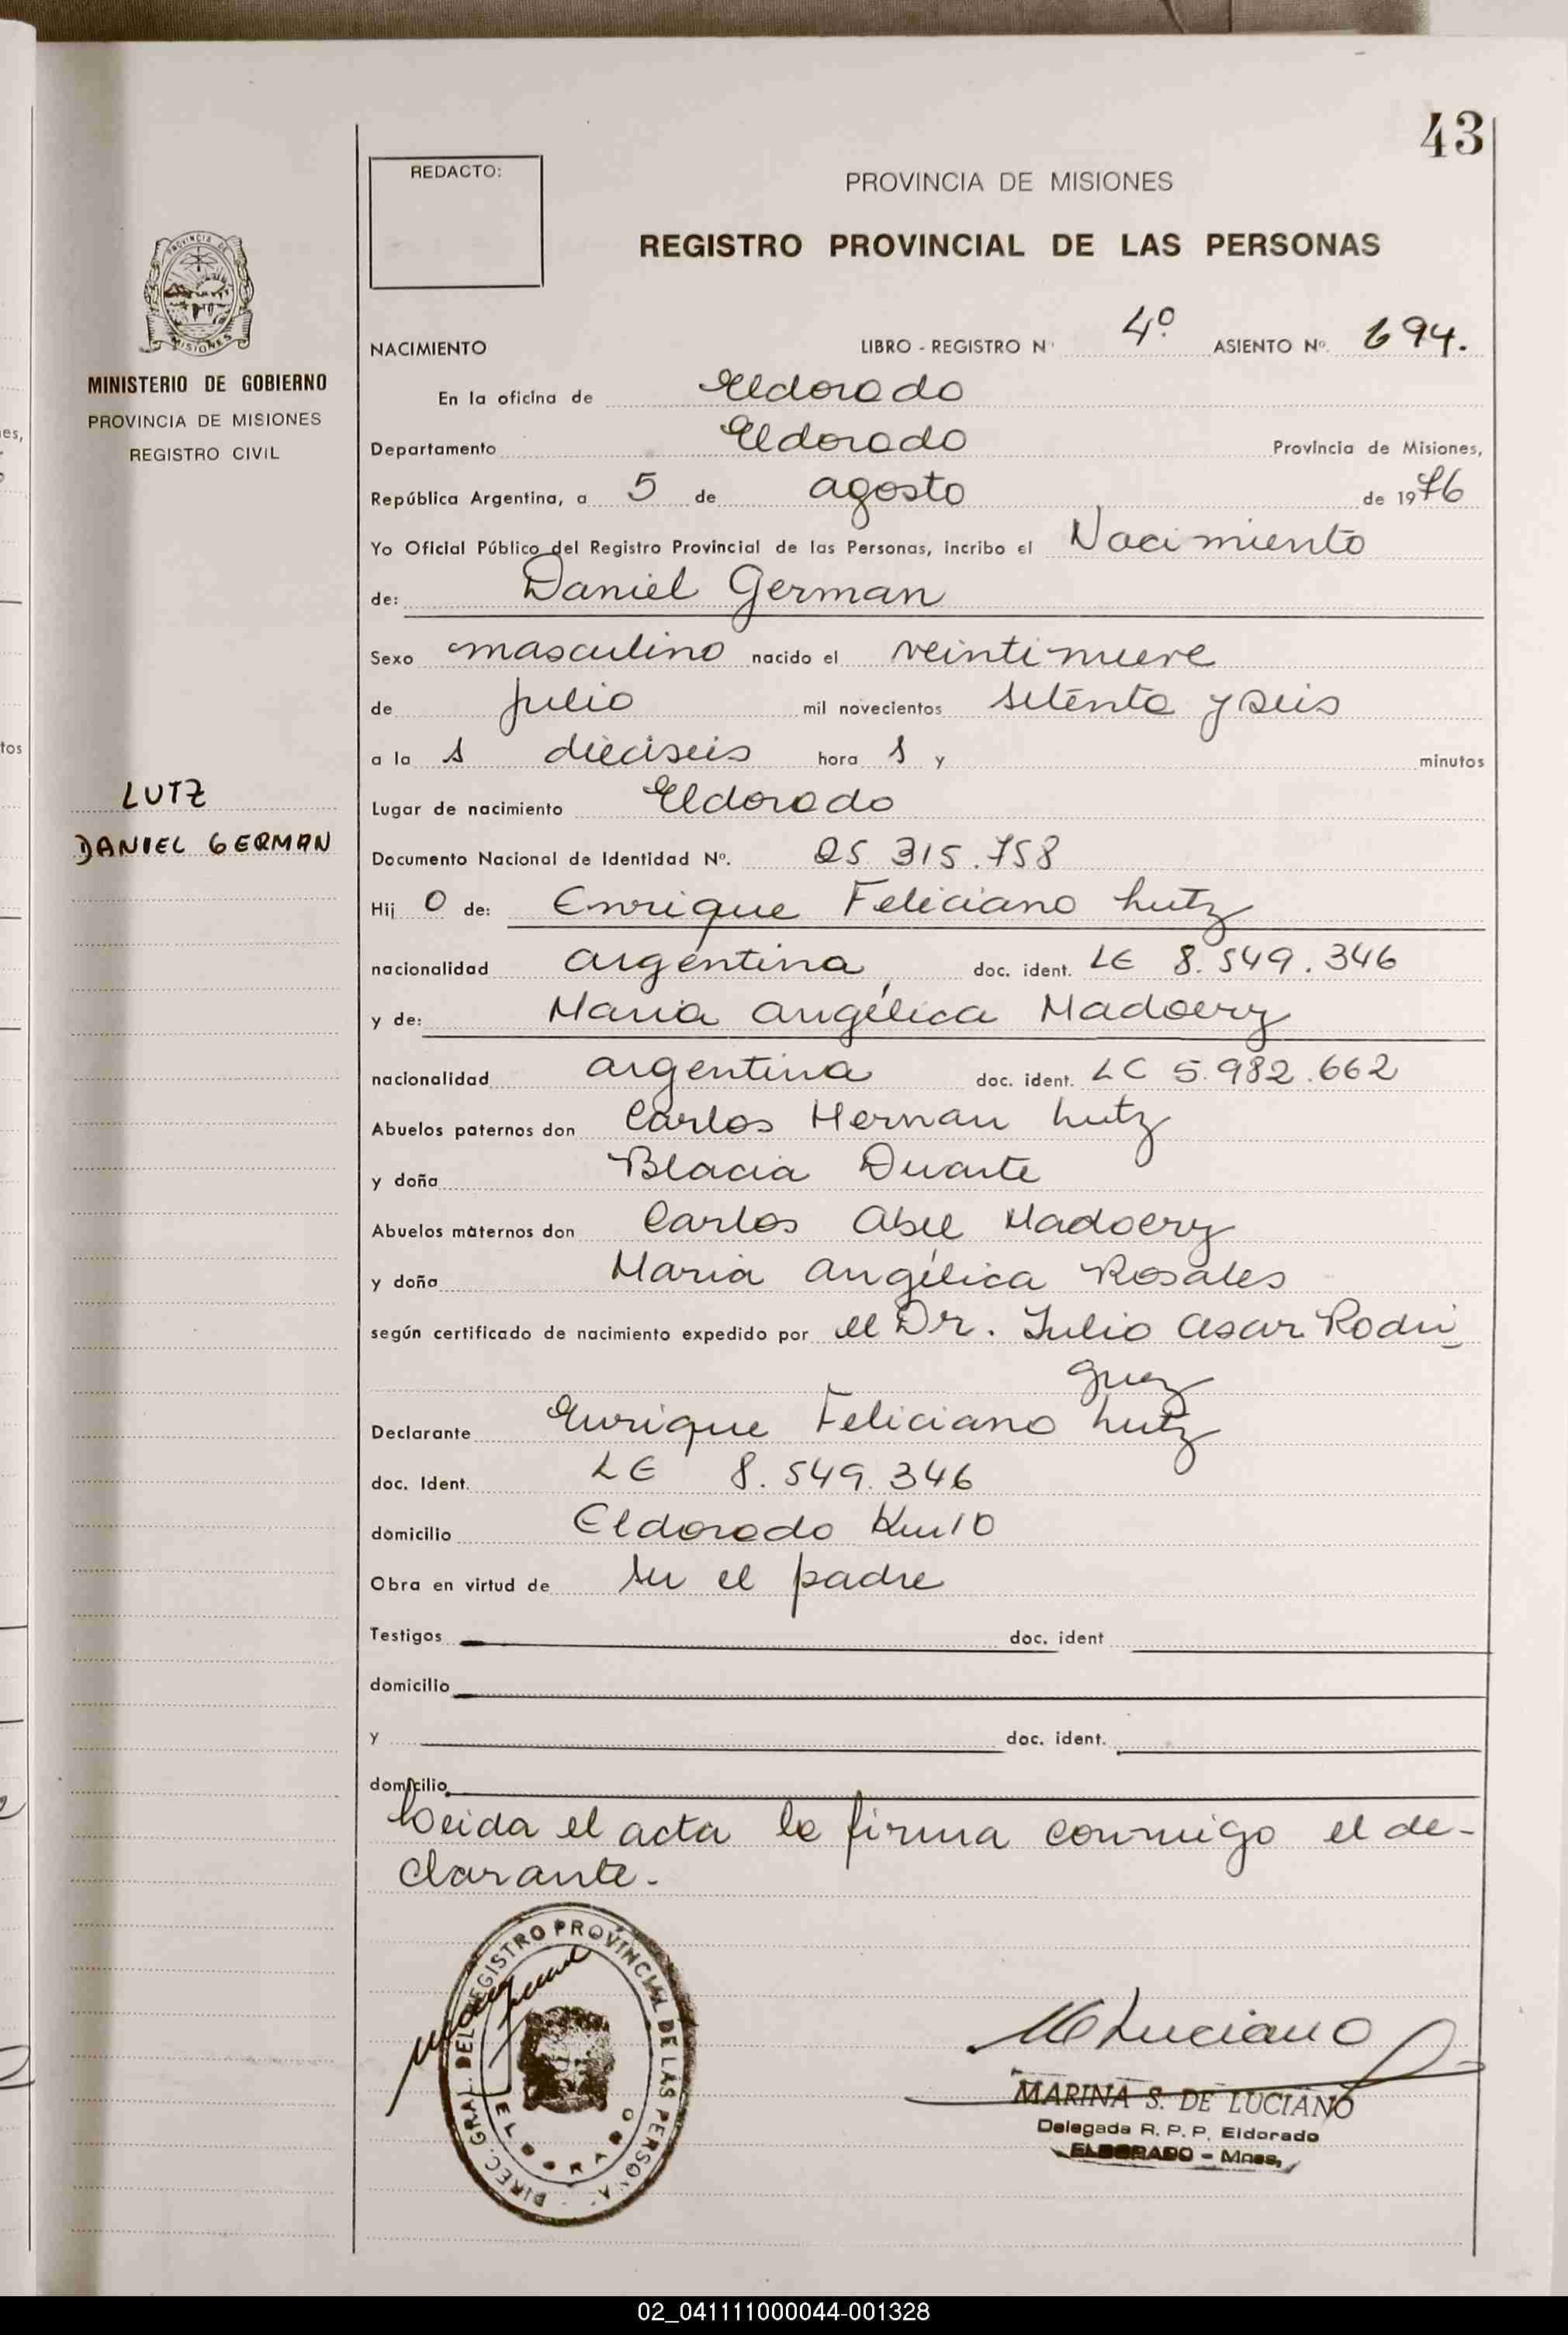 43
REDACTO:
PROVINCIA DE MISIONES
REGISTRO PROVINCIAL DE LAS PERSONAS
PROVINCIA DE
MISIONES
MINISTERIO DE GOBIERNO
PROVINCIA DE MISIONES
REGISTRO CIVIL
LUTZ
DANIEL GERMAN
NACIMIENTO LIBRO - REGISTRO Nº 4º. ASIENTO Nº. 694.
En la oficina de Eldorado
Departamento Eldorado Provincia de Misiones,
República Argentina, a 5 de agosto de 1976
Yo Oficial Público del Registro Provincial de las Personas, incribo el Nacimiento
de: Daniel German
Sexo masculino nacido el veintinueve
de julio mil novecientos setenta y seis
a la s dieciseis hora s y minutos
Lugar de nacimiento Eldorado
Documento Nacional de Identidad Nº. 25.315.758
Hij o de: Enrique Feliciano Lutz
nacionalidad argentina doc. ident. LE 8.549.346
y de: Maria Angélica Madoery
nacionalidad argentina doc. ident. LC 5.982.662
Abuelos paternos don Carlos Hernan Lutz
y doña Blacia Duarte
Abuelos maternos don Carlos Abel Madoery
y doña Maria Angélica Rosales
según certificado de nacimiento expedido por el Dr. Julio Cesar Rodri
guez
Declarante Enrique Feliciano Lutz
doc. Ident. LE 8.549.346
domicilio Eldorado Km 10
Obra en virtud de ser el padre
Testigos doc. ident
domicilio
y doc. ident.
domicilio
Leida el acta la firma conmigo el de-
clarante.
DIREC. GRAL. DEL REGISTRO PROVINCIAL DE LAS PERSONA
ELDORADO
M Luciano
MARINA S. DE LUCIANO
Delegada R. P. P. Eldorado
ELDORADO - Mnes,
02_041111000044-001328